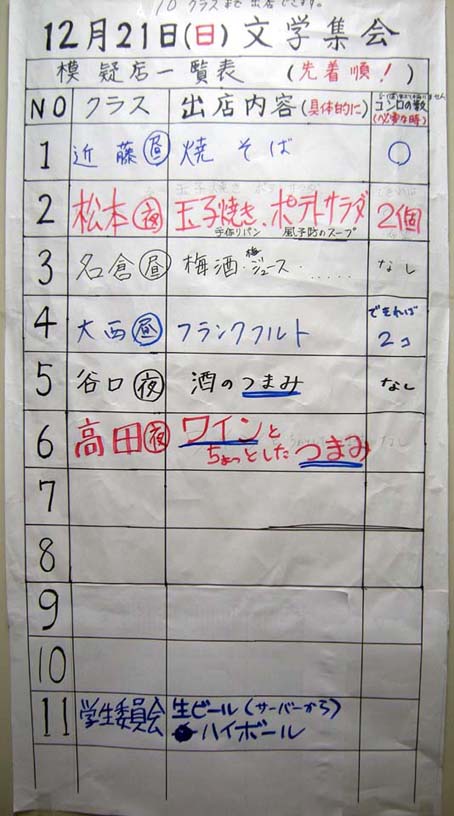 10 クラスまで出店できます。
12月21日(日)文学集会
模疑店一覧表 (先着順!)
NO クラス 出店内容(具体的に) コンロの数(必要な時)
1 近藤 昼 焼そば ○
2 松本 夜 玉子焼き、ポテトサラダ 2個
手作りパン
3 名倉 昼 梅酒・梅ジュース・‥‥‥ なし
4 大西 昼 フランクフルト できれば
2コ
5 谷口 夜 酒のつまみ なし
6 高田 夜 ワインと
ちょっとしたつまみ
7
8
9
10
11 学生委員会 生ビール(サーバーから)
ハイボール